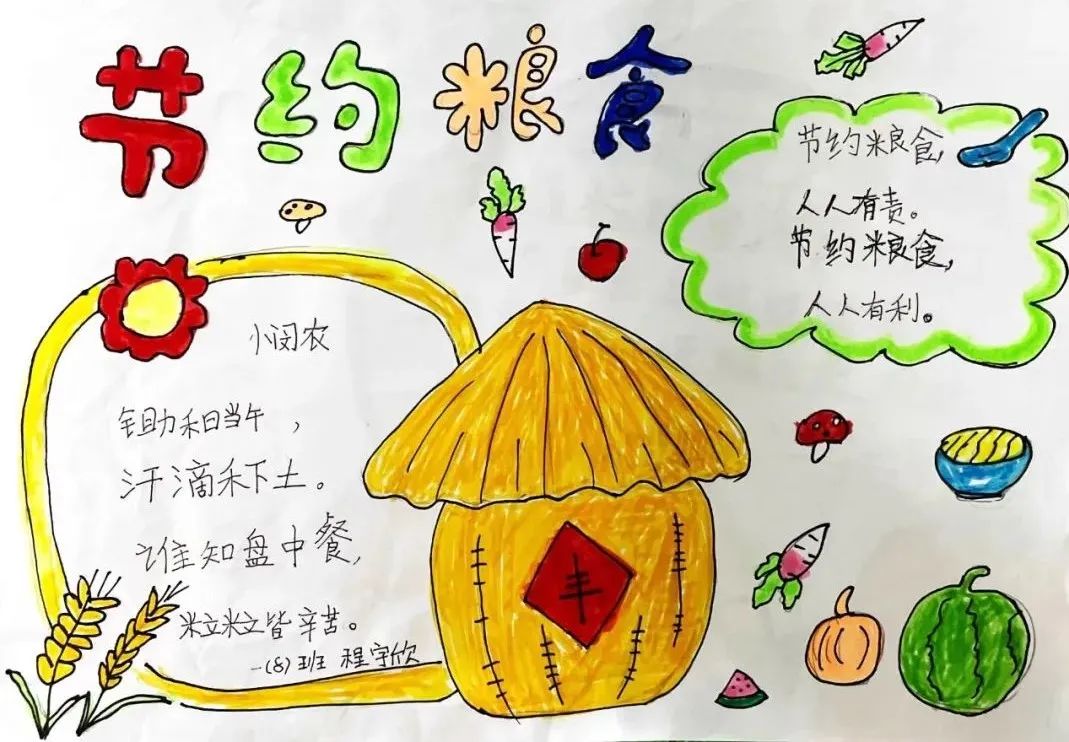 节约粮食
节约粮食,
人人有责。
节约粮食,
人人有利。
小闵农
锄禾日当午,
汗滴禾下土。
谁知盘中餐,
粒粒皆辛苦。
一(8)班 程宇欣
丰